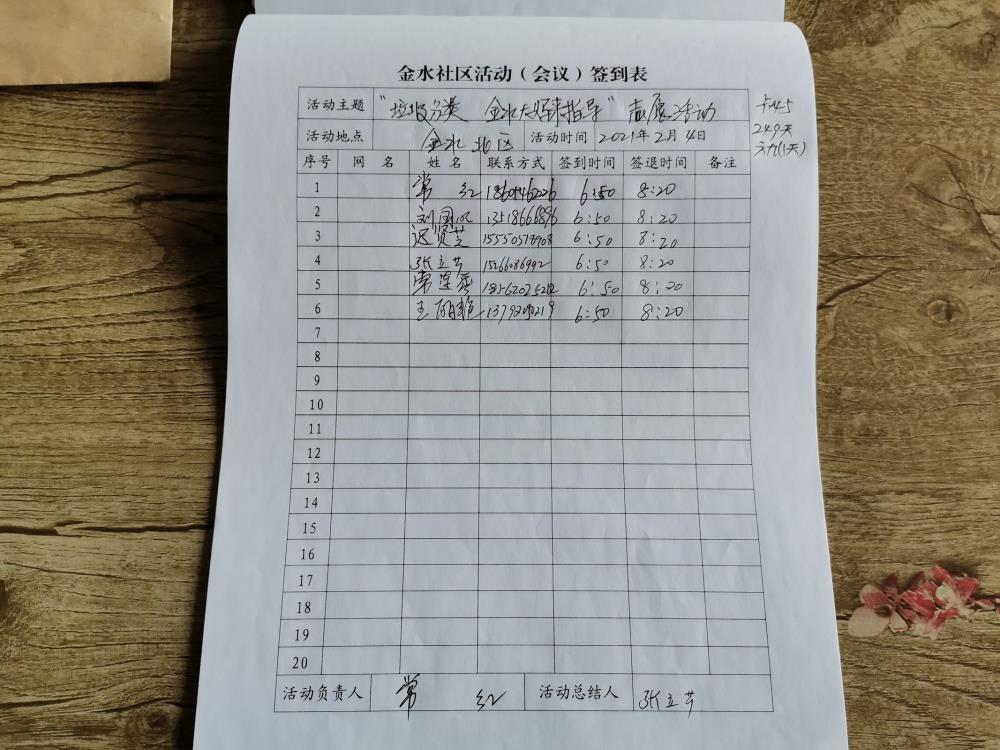 金水社区活动（会议）签到表
活动主题 "垃圾分类 金水大妈来指导" 志愿活动
活动地点 金水北区 活动时间 2021年2月4日
249天
序号 网名 姓名 联系方式 签到时间 签退时间 备注
1 常红 6:50 8:20
2 13518666896 6:50 8:20
3 迟贤芝 6:50 8:20
4 张立芳 6:50 8:20
5 6:50 8:20
6 6:50 8:20
7
8
9
10
11
12
13
14
15
16
17
18
19
20
活动负责人 常红 活动总结人 张立芳